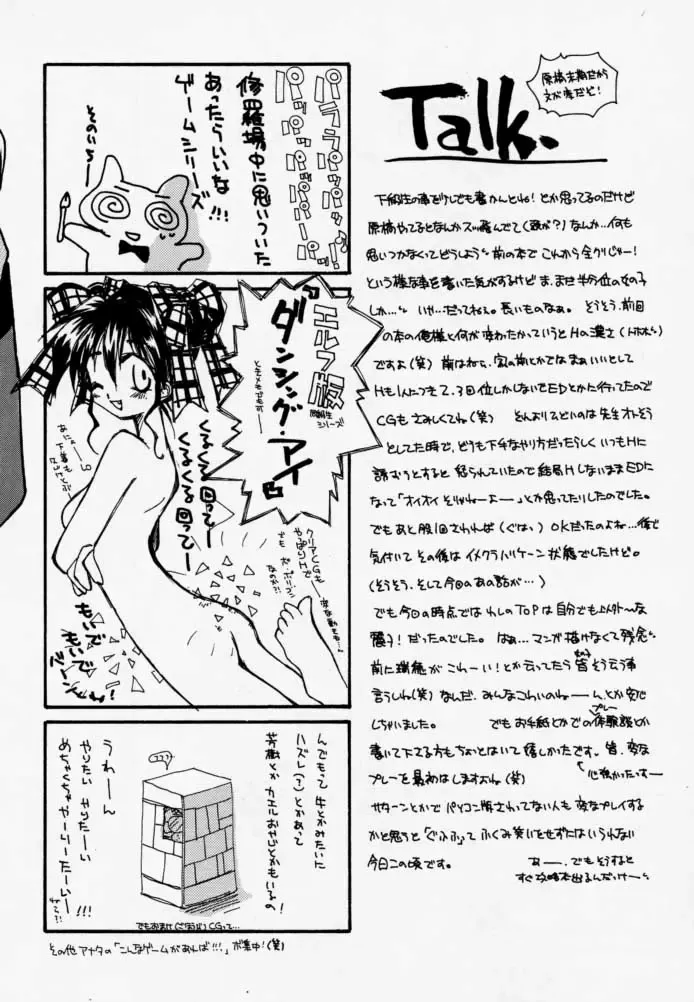 Talk.
原稿末期だから
文が変だど!
下級生の事を少しでも書かんとね!とか思ってるのだけど
原稿やってるとなんかスッ飛んでて(頭が?)なんか…何も
思いつかなくってどうしよう〜前の本でこれから全クリじゃー!
という様な事を書いた気がするけど ま、まだ半分位の女の子
しか…〜 いや…だってねぇ。長いものなぁ。 そうそう、前回
の本の俺様と何が変わったかっていうとHの濃さ(トホホ〜)
ですよ(笑) 前はねぇ、
Hも1人につき2、3回位しかしないでEDとかに行ってたので
CGもさみしくてね(笑) そんよりひどいのは先生オトそう
としてた時で、どうも下手なやり方だったらしく いつもHに
誘おうとすると 怒られていたので結局Hしないまま EDに
なって「オイオイ そりゃねーよー」とか思ってたりしたのでした。
でもあと股1回さわれば(ぐはっ) OKだったのよね…後で
気付いて その後はイメクラハリケーン状態でしたけど。
(そうそう、そして今回のあの話が…)
でも今回の時点ではわしのTOPは自分でも意外〜な
麗子!だったのでした。 はぁ…マンガ描けなくて残念〜
前に瑞穂がこわーい!とか云ってたら 皆そう云う事
言うしね(笑) なんだ、みんなこわいのねーん、とか安心
しちゃいました。 でもお手紙とかでのプレー体験談とか
書いて下さる方もちょっとはいて嬉しかったです。皆、変な
プレーを最初はしますよね(笑)
心強かったっすー
サターンとかでパソコン版されてない人も 変なプレイする
かと思うと「ぐふふ」って ふくみ笑いをせずにはいられない
今日この頃です。
あー、でもそうすると
すぐ攻略本出るんだっけー〜
パララパッパッ
パッパッパッパーパッ!
修羅場中に思いついた
あったらいいな
ゲームシリーズ!!!
そのいちー
エルフ版
同級生シリーズ
『ダンシング・アイ』
ときメモでも可ー
くるくる回ってー
くるくる回ってー
クリアCGも
やっぱりHで
でも
ポリゴン
なのか?!
もいで
もいで
バーン
んでもって 牛とかみたいに
ハズレ(?)とかあって
芳樹とか カエルおやじとかもいるの!
うわーん
やりたい やりたーい
めちゃくちゃ やーりーたーいー!!!
ココア
でもおまけ CGって…
その他 アナタの「こんなゲームがあれば!!!」ボ集中!(笑)